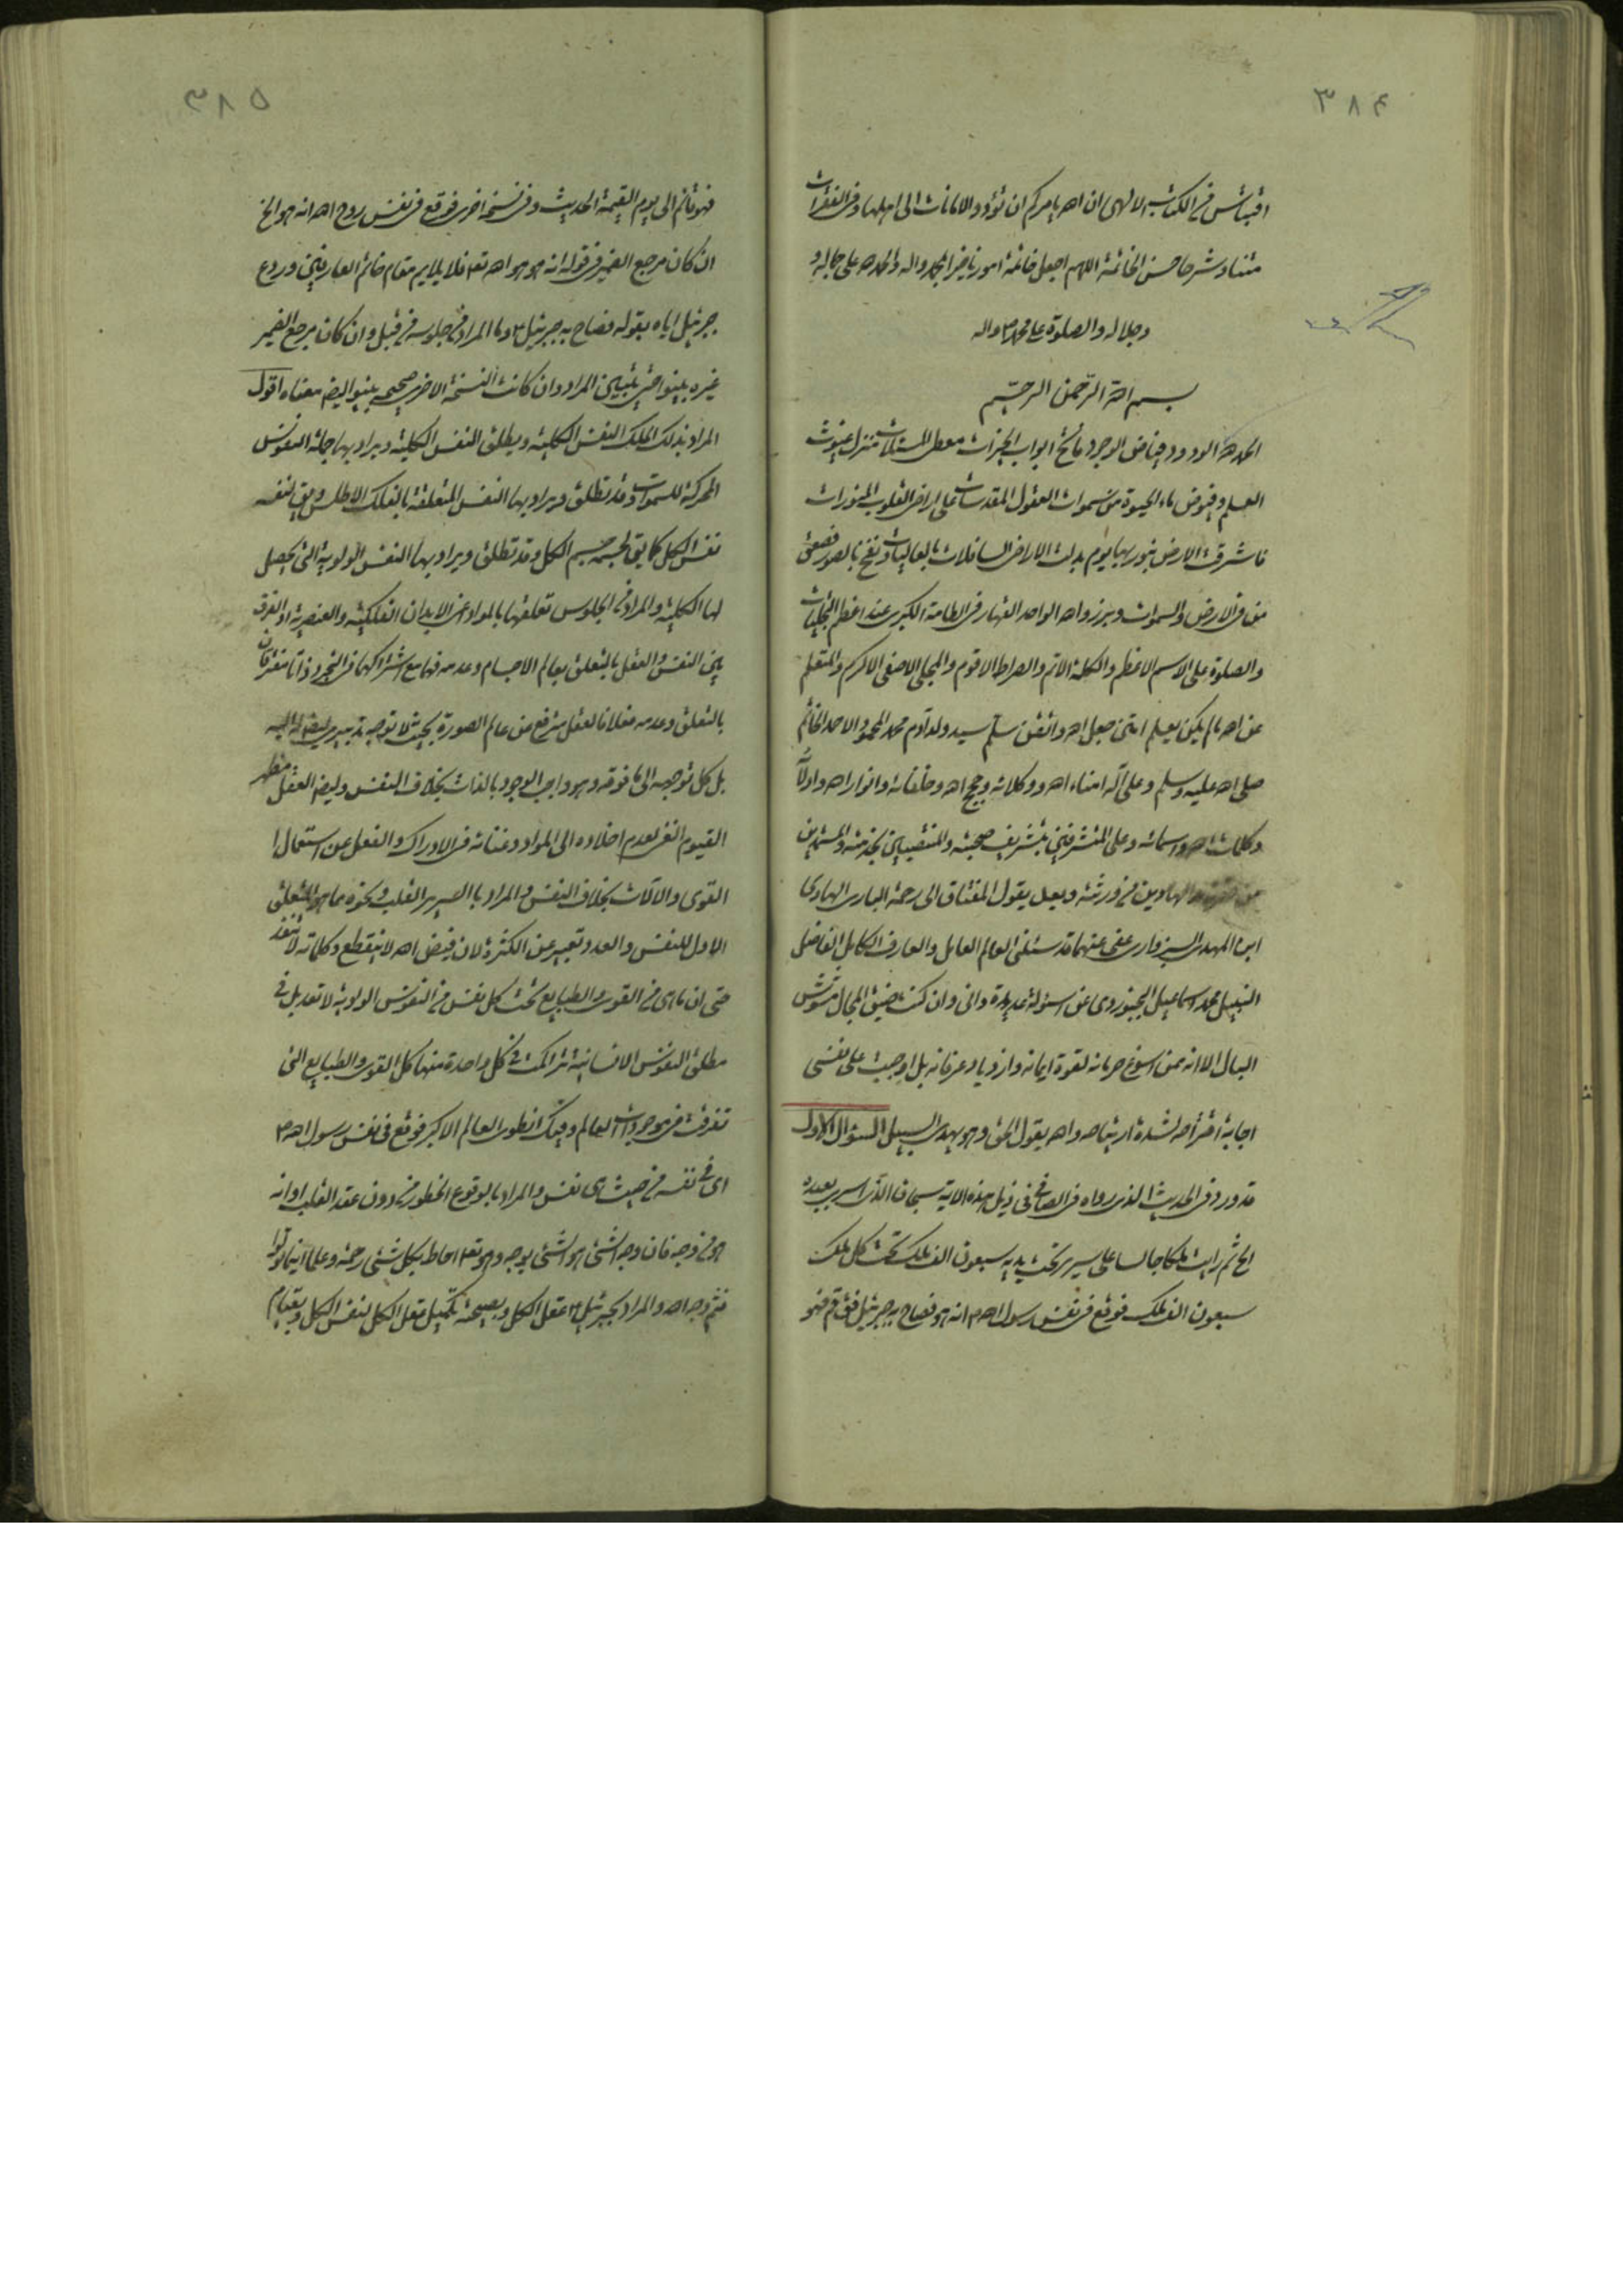 ٣٨۴
اقتباس من الكتاب الالهى ان الله يامركم ان تؤدوا الامانات الى اهلها وفى الفقرات
متنا وشرحا حسن الخاتمة اللهم اجعل خاتمة امورنا خيرا بمحمد واله والحمد لله على جماله و
وجلاله والصلوة على محمد واله
بسم الله الرّحمن الرحيم
الحمد لله الودود فياض الوجود فاتح ابواب الخيرات معطى المسئلات منزل غيوث
العلم وفيوض ماء الحيوة من سموات العقول المقدسات على اراضى القلوب المنورات
فاشرقت الارض بنور ربها يوم بدلت الاراضى السافلات بالعاليات ونفخ بالصور فصعق
من فى الارض والسموات وبرزوا لله الواحد القهار فى الطامة الكبرى عند اعظم التجليات
والصلوة على الاسم الاعظم والكلمة الاتم والصراط الاقوم والمجلى الاصفى الاكرم والمتعلم
عن الله ما لم يكن يعلم سيد ولد آدم محمد المحمود الاحمد الخاتم
صلى الله عليه وسلم وعلى آله امناء الله ووكلائه وحجج الله وخلفائه وانوار الله
وكلمات الله واسمائه وعلى المتشرفين بتشريف صحبته والمنتصبين بخدمته
الهادين من ورثته وبعد يقول المفتاق الى رحمة البارى الهادى
ابن المهدى السبزوارى عفى عنهما قد سئلنى العالم العامل والعارف الكامل الفاضل
النبيل محمد اسماعيل البجنوردى عن اسئولة عديدة وانى وان كنت ضيق المجال مشوش
البال الا انه ممن اسوغ حرمانه لقوة ايمانه وازدياد عرفانه بل اوجبت على نفسى
اجابة اقتراحه لشدة ارتياحه والله يقول الحق وهو يهدى السبيل السؤال الاول
قد ورد فى الحديث الذى رواه فى الصافى فى ذيل هذه الاية سبحان الذى اسرى بعبده
الخ ثم رايت ملكا جالسا على سرير تحت يديه سبعون الف ملك تحت كل ملك
سبعون الف ملك فوقع فى نفس رسول الله ص انه هو فصاح به جبرئيل فق قم فهو
٣٨٥
فهو قائم الى يوم القيمة الحديث وفى نسخة اخرى فوقع فى نفس روح الله انه هو الخ
ان كان مرجع الضمير فى قوله انه هو هو الله تع فلا يلايم مقام خاتم العارفين وردع
جبرئيل اياه بقوله فصاح به جبرئيل وما المراد من جلوسه من قبل وان كان مرجع الضمير
غيره بينوا حتى يتبين المراد وان كانت النسخة الاخرى صحيحه بينوا ايضا معناه اقول
المراد بذلك الملك النفس الكلية ويطلق النفس الكلية ويراد بها جملة النفوس
المحركة للسموات وقد تطلق ويراد بها النفس المتعلقة بالفلك الاطلس ويق لنفسه
نفس الكل كما يق لجسمه جسم الكل وقد تطلق ويراد بها النفس الولوية التى يحصل
لها الكلية والمراد من الجلوس تعلقها بالمواد اعنى الابدان الفلكية والعنصرية اذ الفرق
بين النفس والعقل بالتعلق بعالم الاجسام وعدمه فهما مع اشتراكهما فى التجرد ذاتا مفترقان
بالتعلق وعدمه فعلا فالعقل مترفع عن عالم الصورة بحيث لا توجه تدبيرى له اليه
بل كل توجهه الى ما فوقه وهو واجب الوجود بالذات بخلاف النفس وايضا العقل مظهر
القيوم الغنى لعدم اخلاده الى المواد وغنائه فى الادراك والفعل عن استعمال
القوى والالات بخلاف النفس والمراد بالسرير القلب ونحوه مما هو المتعلق
الاول للنفس والعدد تعبير عن الكثرة لان فيض الله لا ينقطع وكلماته لا تنفد
حتى ان ما هى من القوى والطبايع تحت كل نفس من النفوس الولوية لا تعديل فى
مطلق النفوس الانسانية تراكمت فى كل واحدة منها كل القوى والطبايع التى
تفرقت فى موجودات العالم وفيك انطوى العالم الاكبر فوقع فى نفس رسول الله ص
اى فى نفسه من حيث هى نفس والمراد بالوقوع الخطور من دون عقد القلب او انه
هو من وجه فان وجه الشئ هو الشئ بوجه وهو تع احاط بكل شئ رحمة وعلما اينما تولوا
فثم وجه الله والمراد بجبرئيل عقل الكل وبصيحته تكميل عقل الكل لنفس الكل وبقيام